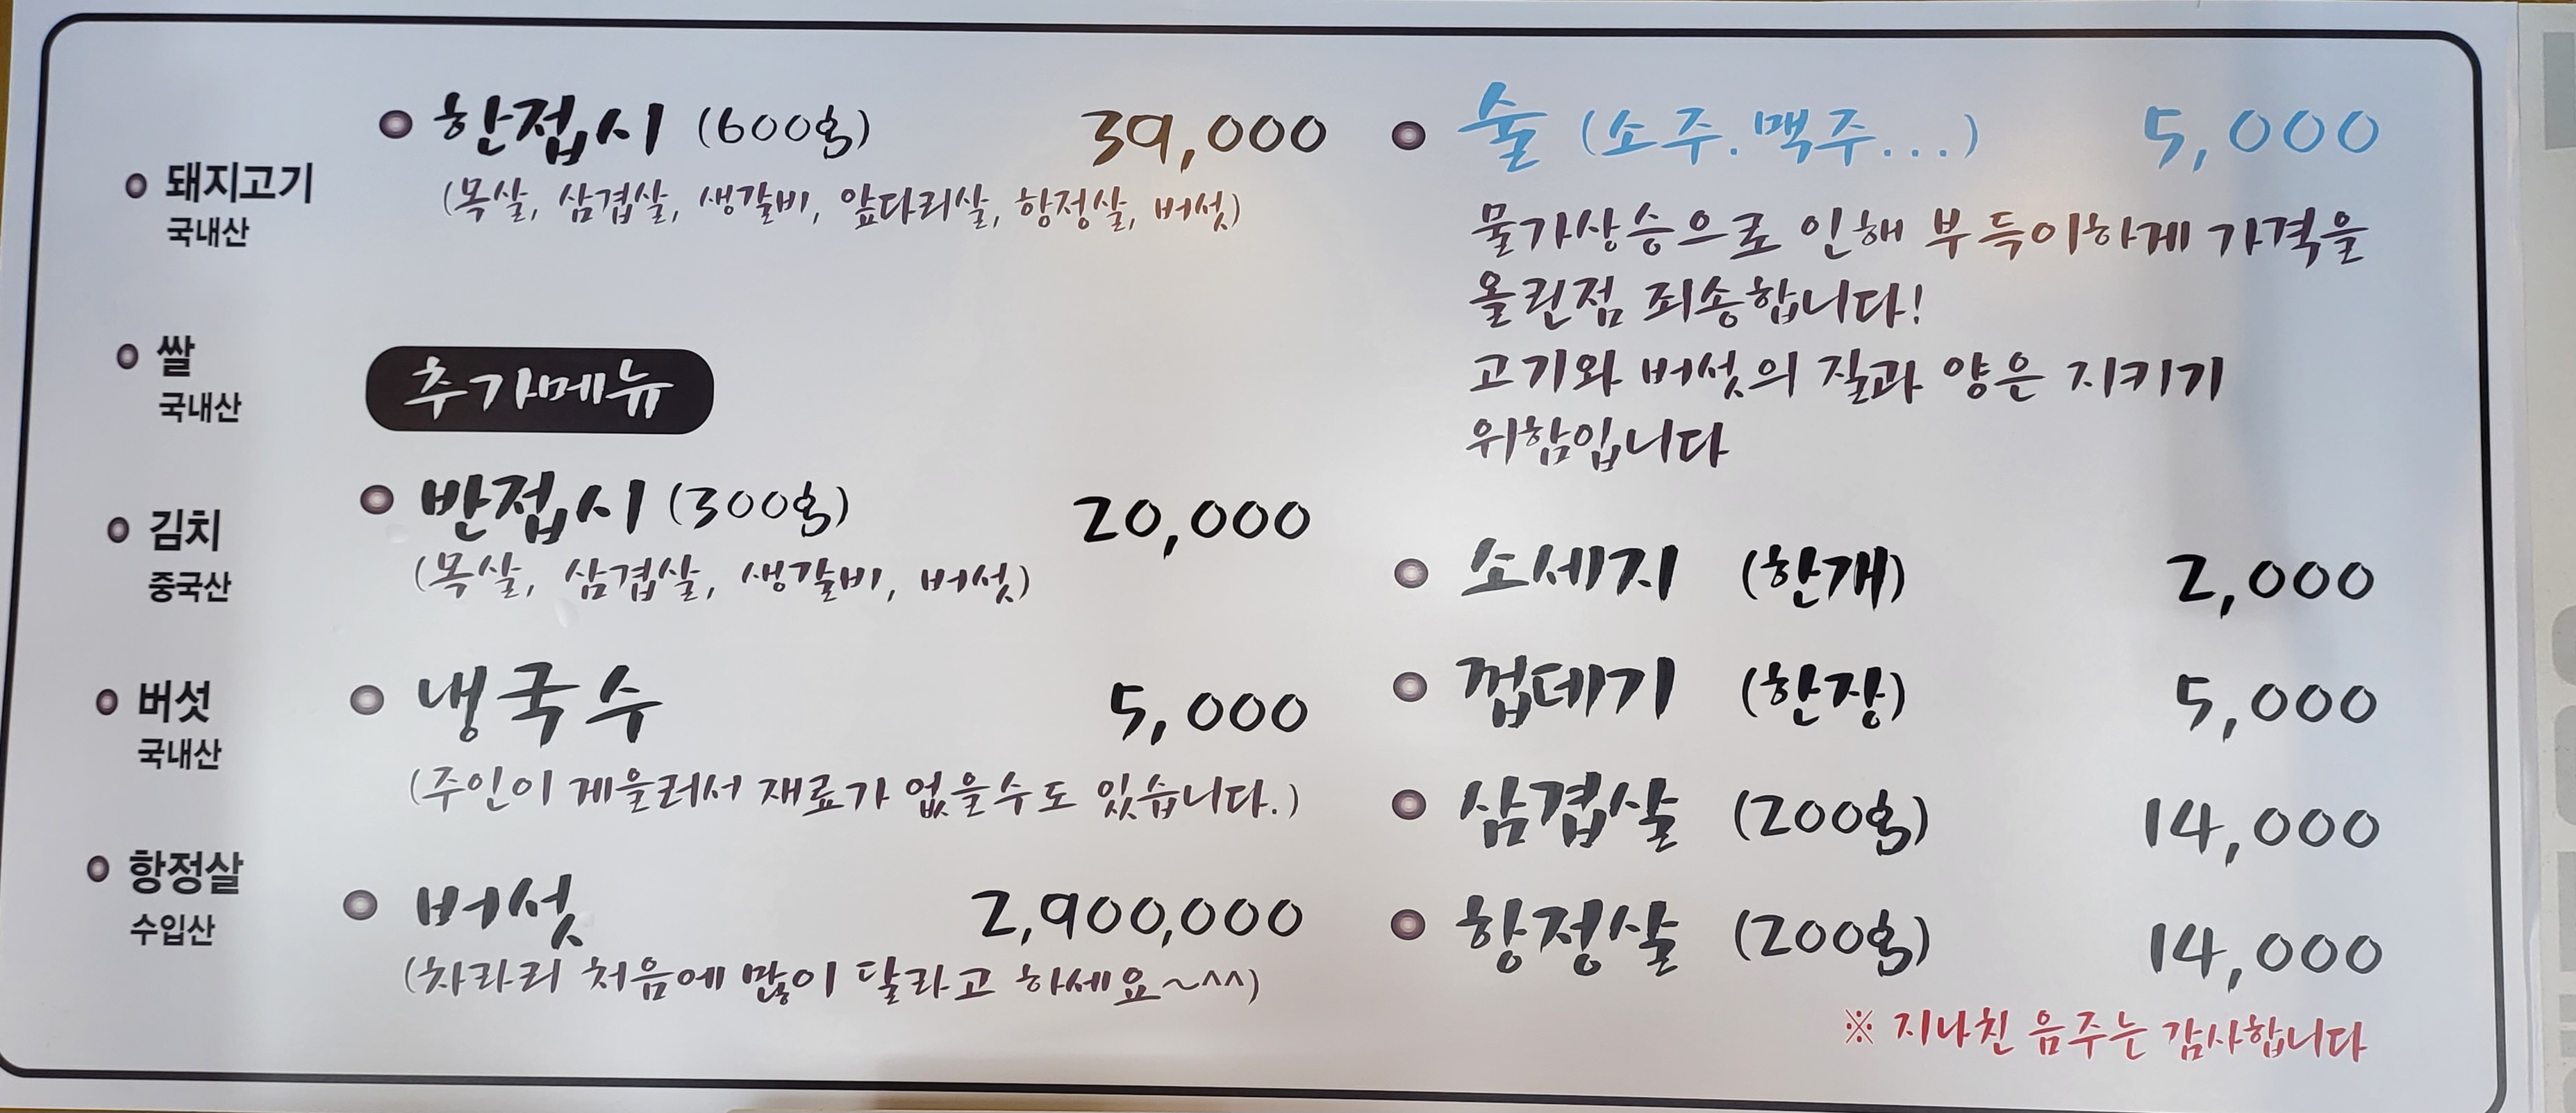 돼지고기
국내산
쌀
국내산
김치
중국산
버섯
국내산
항정살
수입산
한접시 (600g) 39,000
(목살, 삼겹살, 생갈비, 앞다리살, 항정살, 버섯)
추가메뉴
반접시 (300g) 20,000
(목살, 삼겹살, 생갈비, 버섯)
냉국수 5,000
(주인이 게을러서 재료가 없을수도 있습니다.)
버섯 2,900,000
(차라리 처음에 많이 달라고 하세요~^^)
술 (소주.맥주...) 5,000
물가상승으로 인해 부득이하게 가격을
올린점 죄송합니다!
고기와 버섯의 질과 양은 지키기
위함입니다
소세지 (한개) 2,000
껍데기 (한장) 5,000
삼겹살 (200g) 14,000
항정살 (200g) 14,000
※ 지나친 음주는 감사합니다